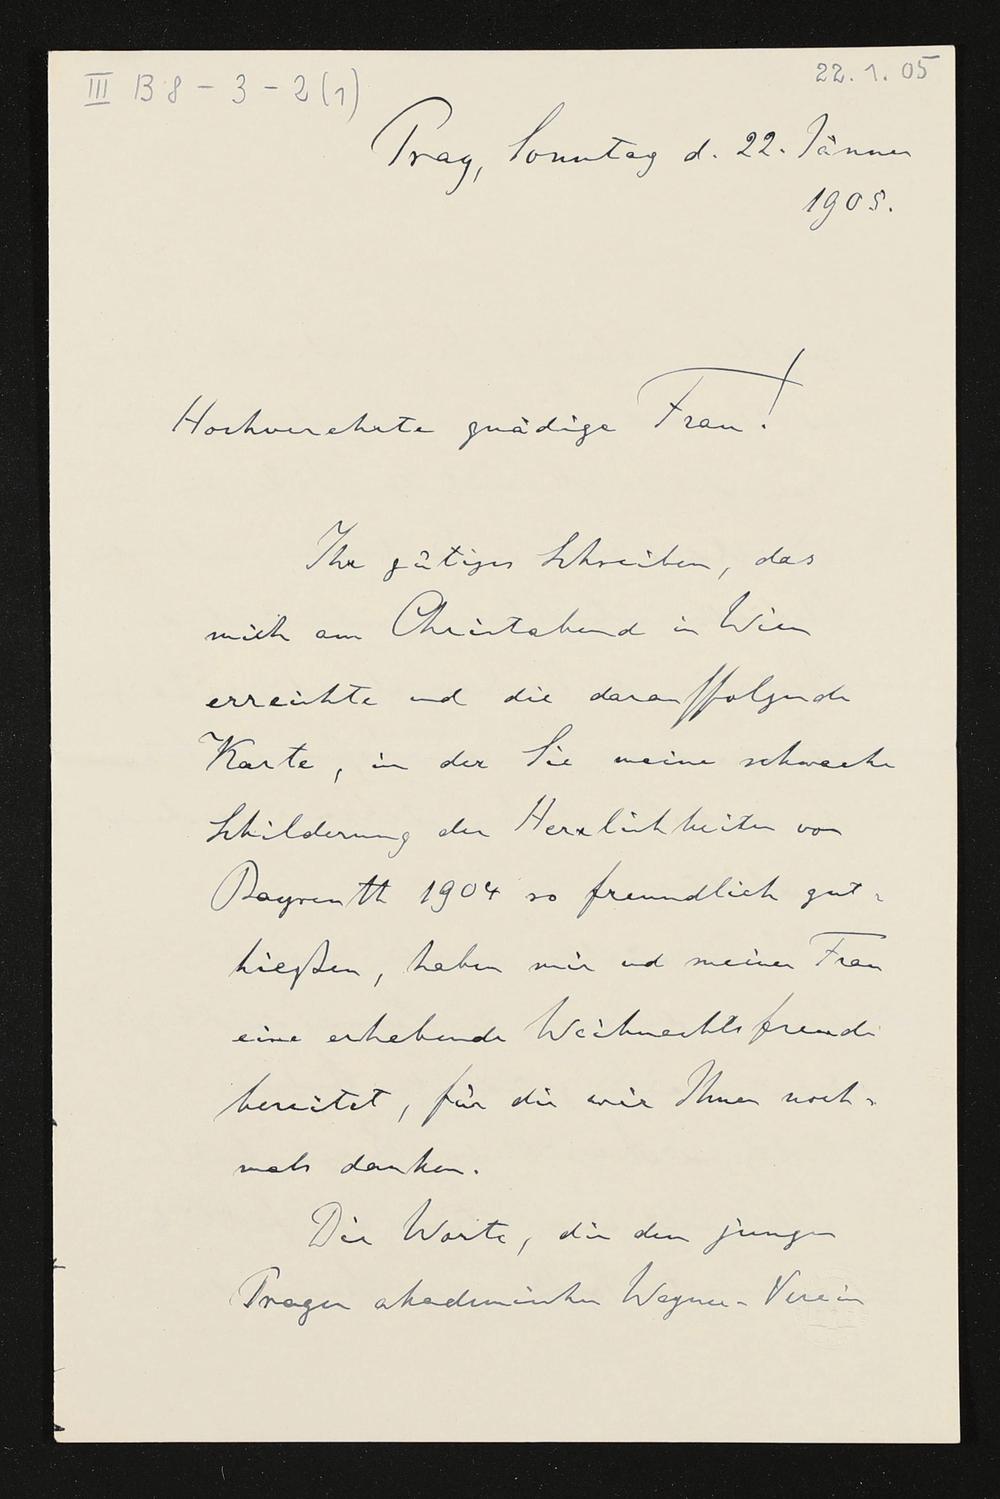 III B 8 - 3 - 2 (1)
22.1.05
Prag, Sonntag d. 22. Jänner
1905.
Hochverehrte gnädige Frau!
Ihr gütiges Schreiben, das
mich am Christabend in Wien
erreichte und die darauffolgende
Karte, in der Sie meine schwache
Schilderung der Herrlichkeiten von
Bayreuth 1904 so freundlich gut-
hießen, haben mir und meiner Frau
eine erhebende Weihnachtsfreude
bereitet, für die wir Ihnen noch-
mals danken.
Die Worte, die den jungen
Prager akademischen Wagner-Verein